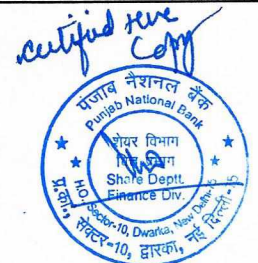 certified true
Copy
पंजाब नैशनल बैंक
Punjab National Bank
शेयर विभाग
वित्त प्रभाग
Share Deptt.
Finance Div.
H.O., Sector-10, Dwarka, New Delhi-75
प्र.का., सेक्टर-10, द्वारका, नई दिल्ली-75